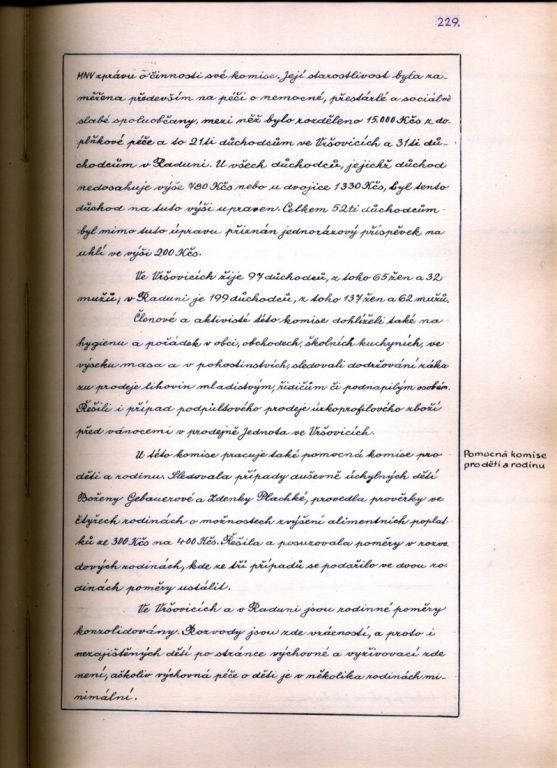 229.
MNV zprávu o činnosti své komise. Její starostlivost byla za-
měřena především na péči o nemocné, přestárlé a sociálně
slabé spoluobčany, mezi něž bylo rozděleno 15.000 Kčs z do-
plňkové péče a to 21ti důchodcům ve Vršovicích a 31ti dů-
chodcům v Raduni. U všech důchodců, jejichž důchod
nedosahuje výše 780 Kčs nebo u dvojice 1330 Kčs, byl tento
důchod na tuto výši upraven. Celkem 52ti důchodcům
byl mimo tuto úpravu přiznán jednorázový příspěvek na
uhlí ve výši 200 Kčs.
Ve Vršovicích žije 97 důchodců, z toho 65 žen a 32
mužů; v Raduni je 199 důchodců, z toho 137 žen a 62 mužů.
Členové a aktivisté této komise dohlíželi také na
hygienu a pořádek v obci, obchodech, školních kuchyních, ve
výseku masa a v pohostinstvích, sledovali dodržování záka
zu prodeje lihovin mladistvým, řidičům či podnapilým osobám.
Řešili i případ podpultového prodeje úzkoprofilového zboží
před vánocemi v prodejně Jednota ve Vršovicích.
U této komise pracuje také pomocná komise pro
děti a rodinu. Sledovala případy duševně úchylných dětí
Boženy Gebauerové a Zdenky Plachké, provedla prověrky ve
čtyřech rodinách o možnostech zvýšení alimentních poplat-
ků ze 300 Kčs na 400 Kčs. Řešila a posuzovala poměry v rozvo-
dových rodinách, kde ze tří případů se podařilo ve dvou ro-
dinách poměry ustálit.
Ve Vršovicích a v Raduni jsou rodinné poměry
konzolidovány. Rozvody jsou zde vzácností, a proto i
nezajištěných dětí po stránce výchovné a vyživovací zde
není, ačkoliv výchovná péče o děti je v několika rodinách mi-
nimální.
Pomocná komise
pro děti a rodinu